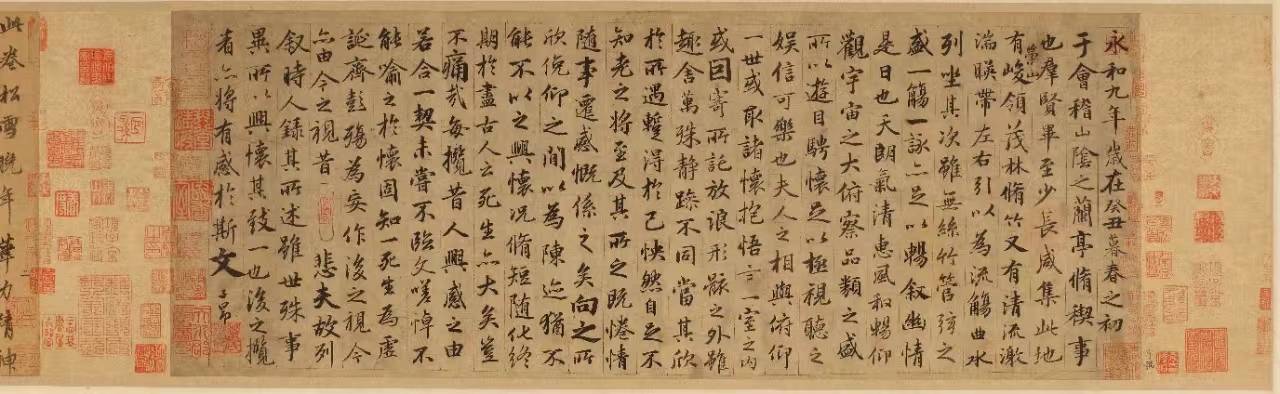 永和九年歲在癸丑暮春之初
于會稽山陰之蘭亭脩禊事
也羣賢畢至少長咸集此地
有崇山峻領茂林脩竹又有清流激
湍暎帶左右引以為流觴曲水
列坐其次雖無絲竹管弦之
盛一觴一詠亦足以暢叙幽情
是日也天朗氣清惠風和暢仰
觀宇宙之大俯察品類之盛
所以遊目騁懷足以極視聽之
娛信可樂也夫人之相與俯仰
一世或取諸懷抱悟言一室之內
或因寄所託放浪形骸之外雖
趣舍萬殊靜躁不同當其欣
於所遇蹔得於己怏然自足不
知老之將至及其所之既惓情
隨事遷感慨係之矣向之所
欣俛仰之間以為陳迹猶不
能不以之興懷況脩短隨化終
期於盡古人云死生亦大矣豈
不痛哉每攬昔人興感之由
若合一契未嘗不臨文嗟悼不
能喻之於懷固知一死生為虛
誕齊彭殤為妄作後之視今
亦由今之視昔悲夫故列
叙時人錄其所述雖世殊事
異所以興懷其致一也後之攬
者亦將有感於斯文 子昂
此卷松雪晚年筆力精神